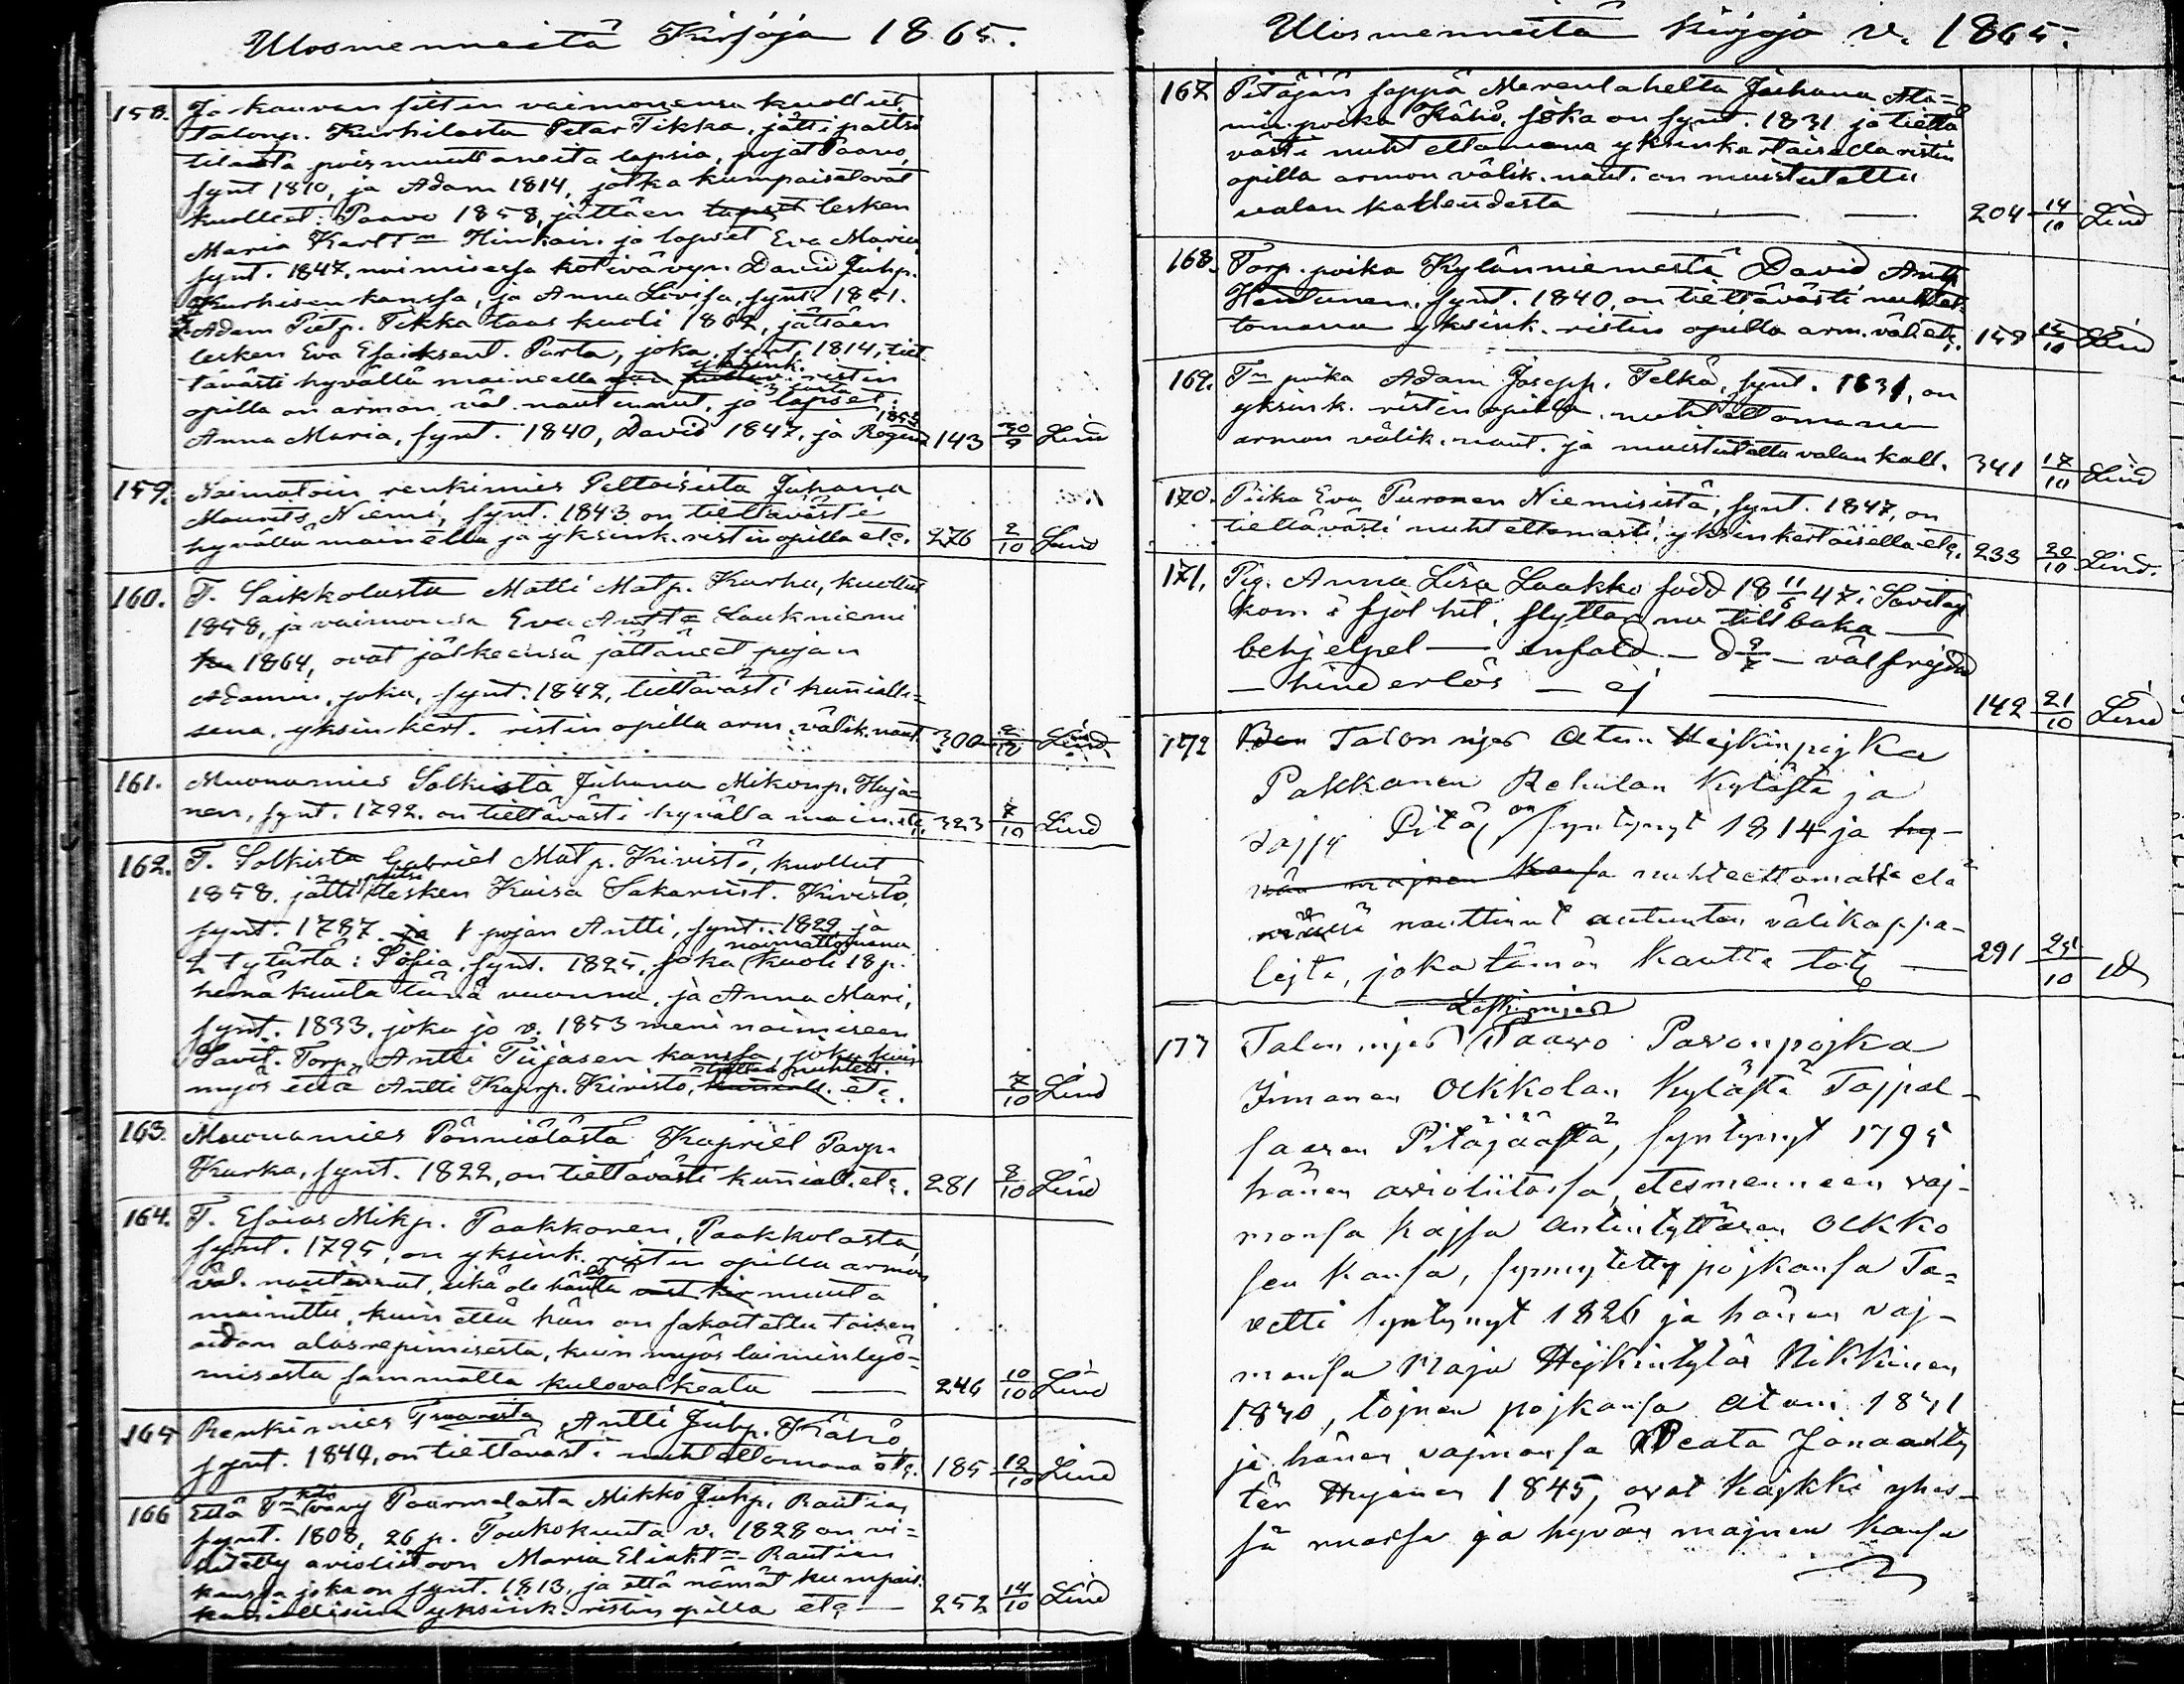 Ulosmenneitä Kirjoja 1865.
158. Jo kauvan sitten vaimonensa kuollut
talonp. Kurhilasta Petar Tikka, jätti paitsi
tilasta poismuuttaneita lapsia, pojat Paavo,
synt 1810, ja Adam 1814, jotka kumpaisetovat
kuolleet: Paavo 1858, jättäen lapset lesken
Maria Karlt= Hinkain ja lapset Eva Maria
synt. 1847, naimisessa kotivävyn David Juhp.
Kurhisen kanssa, ja Anna Lovisa, synt. 1851.
2. Adam Pietp. Tikka taas kuoli 1862, jättäen
lesken Eva Esaiksent. Parta, joka, synt, 1814, tiet
tävästi hyvällä maineella yksink. ristin
opilla on armon väl. nautinnut, ja 3 lasta lapset:
Anna Maria, synt. 1840, David 1847, ja Regina 1852 143 30/9 Lind
159. Naimatoin renkimies Peltoisista Juhana
Maurits Niemi, synt. 1843 on tiettävästi
hyvällä mainella ja yksink. ristin opilla etc. 276 2/10 Lind
160. T. Saikkolasta Matti Matp. Kurha, kuollut
1858, ja vaimonsa Eva Antt= Laukniemi
ku 1864, ovat jälkeensä jättäneet pojan
Adamin, joka, synt. 1842, tiettävästi kunialli=
sena, yksinkert. ristin opilla arm. välik. naut. 300 2/10 Lind
161. Muonamies Solkista Juhana Mikonp. Huja=
nen, synt. 1792. on tiettävästi hyvällä main. etc. 323 7/10 Lind
162. T. Solkista Gabriel Matp. Kivistö, kuollut
1858. jätti paitsi lesken Kaisa Sakariint. Kivistö,
synt. 1787. ja 1 pojan Antti, synt. 1829, ja
2 tytärtä: Sofia, synt. 1825, joka naimattomana kuoli 18 p.
heinäkuuta tänä vuonna, ja Anna Mari,
synt. 1833. joka jo v. 1853 meni naimiseen
Savit. Torp. Antti Tijasen kanssa, joku kuin
myös että Antti Kaprp. Kivistö, etc. 7/10 Lind
163. Muonamies Pönniälästä Kapriel Paop.
Kurka, synt. 1822, on tiettävästi kuniall. etc. 281 8/10 Lind
164. T. Esaias Mikp. Paakkonen, Paakkolasta,
synt. 1795, on yksink. ristin opilla armon
väl. nautinnut, eikä ole häntä muuta
mainittu, kuin että hän on sakoitettu toisen
aidan alasrepimisesta, kuin myös laiminlyö=
misesta sammatta kulovalkeata — 246 10/10 Lind
165 Renkimies Antti Juhp. Kähö,
synt. 1840, on tiettävästi nuhtettomana etc. 185 12/10 Lind
166 Että Tn koti vävy Paarmalasta Mikko Juhp. Rautia,
synt. 1808, 26 p. Toukokuuta v. 1828 on vi=
hitetty avioliitoon Maria Eliakt= Rautian
kanssa joka on synt. 1813, ja että nämät kumpais.
kuniallisina yksink. ristin opilla etc — 252 14/10 Lind
Ulosmenneitä Kirjoja v. 1865.
167 Pitäjän seppä Merenlahelta Juhana Ata=
min poika Kähö, joka on synt. 1831 ja tiettä
västi nuhtettomana yksinkertaisella ristin
opilla armon välik. naut. on muistutettu
valan kalleudesta — — — 204 14/10 Lind
168. Torp. poika Kylänniemestä David Antp
Hentunen, synt. 1840, on tiettävästi nuhtet=
tomana yksink. ristin opilla arm. väl. etc. 158 15/10 Lind
169. Tn poika Adam Josepp. Telkä, synt. 1831, on
yksink. ristin opilla nuhtettomana
armon välik. naut. ja muistutettu valan kall. 341 17/10 Lind
170. Piika Eva Puronen Niemisistä, synt. 1847, on
tiettävästi nuhtettomasti, yksinkertaisella etc. 233 20/10 Lind.
171. Pig. Anna Lisa Laakko född 18 11/6 47 i Savitaip
kom i fjol hit, flyttar nu tillbaka —
behjelpel — enfald — d 9/7 — välfrejdad
— hinderlös — ej — 142 21/10 Lind
172 Talon mjes Atam Hejkinpojka
Pakkanen Rehulan Kylästä ja
Pitäj on syntynyt 1814 ja hy-
vän majnen kansa nuhteettomasta elä
nauttinut autuuten välikappa-
lejta, joka tämän kautta tot 291 24/10
173 Talon mjes Leskimjes Paavo Pavonpojka
Jimanen Olkkolan Kylästä Tajpal-
saaren Pitäjäästä, syntynyt 1795
hänen avioliitossa, etesmenneen vaj-
monsa Kajsa Antintyttären Olkko
sen kansa, synnytetty pojkansa Ta=
vetti syntynyt 1826 ja hänen vaj-
monsa Maja Hejkintytär Nikkinen
1830, tojnen pojkansa Atam 1841
ja hänen vajmonsa Peata Jonaanty
tär Hujanen 1845, ovat kajkki yhes-
sä ruassa ja hyvän majnen kansa